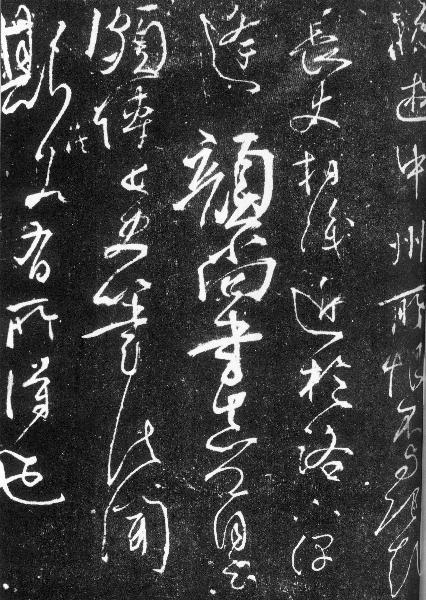 晚遊中州所恨不与張顛
長史相識近於洛下偶
逢顏尚書真卿自云
頗傳長史筆法聞
斯八法若有所得也